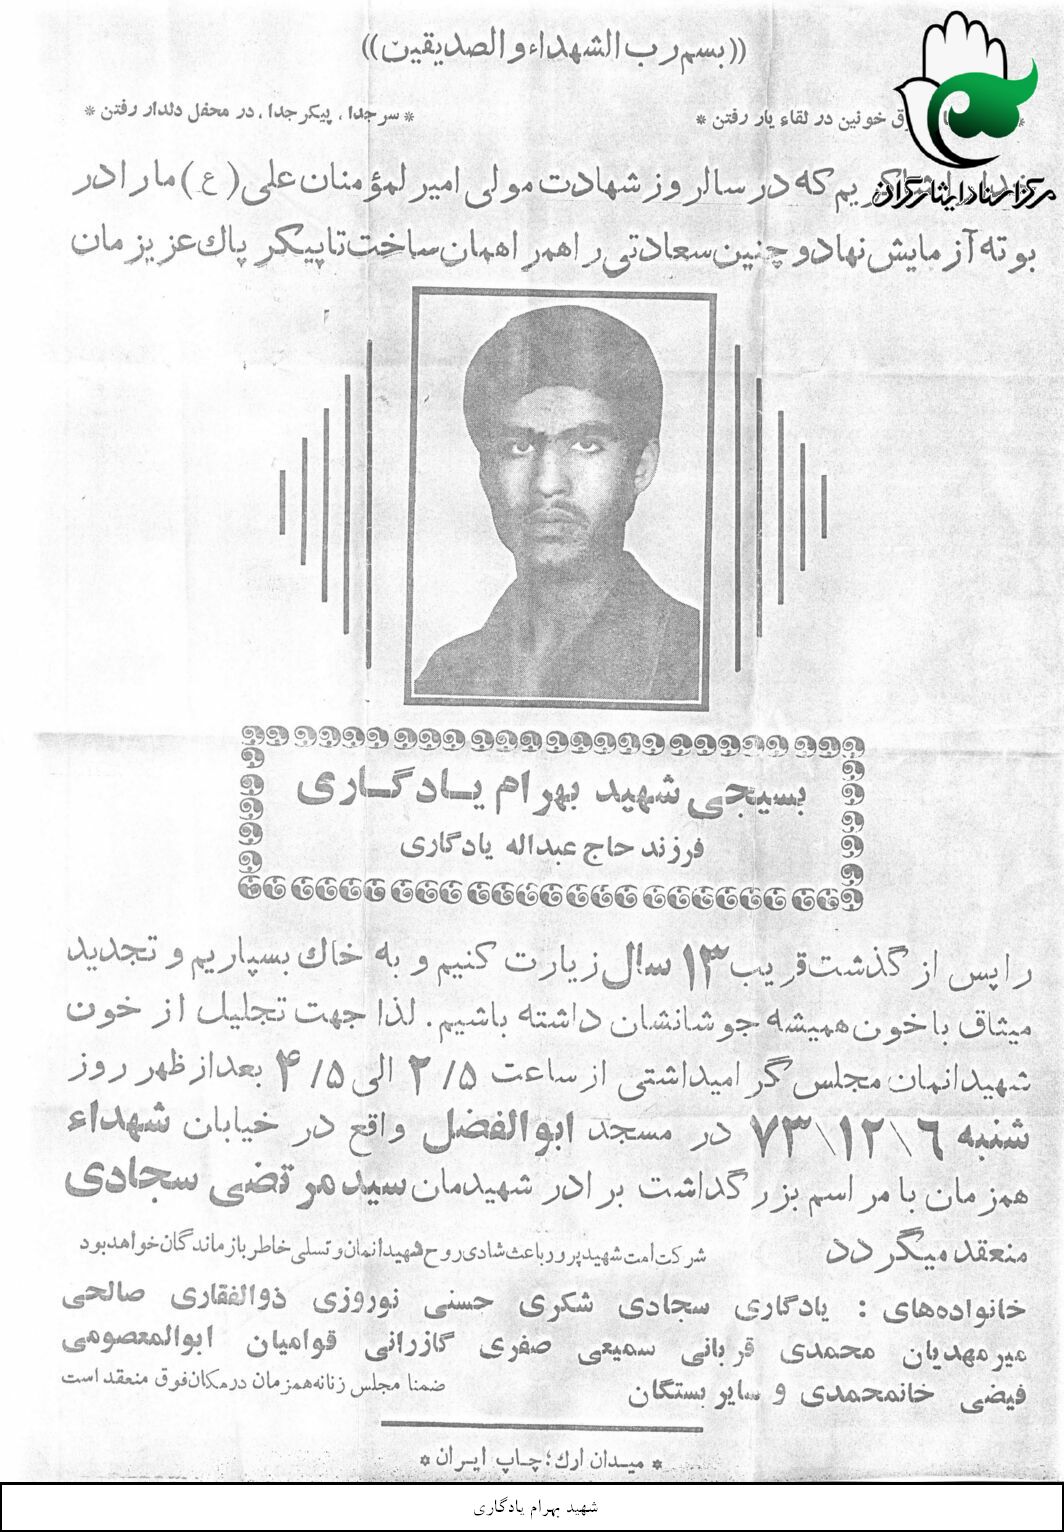 ((بسم رب الشهداء والصدیقین))
خونین در لقاء یار رفتن *
* سر جدا ، پیکر جدا ، در محفل دلدار رفتن *
مرکز اسناد ایثارگران
که در سالروز شهادت مولی امیرلمؤمنان علی (ع) ما را در
بوته آزمایش نهاد و چنین سعادتی را همراهمان ساخت تا پیکر پاك عزیزمان
بسیجی شهید بهرام یـادگـاری
فرزند حاج عبداله یادگاری
را پس از گذشت قریب ۱۳ سال زیارت کنیم و به خاك بسپاریم و تجدید
میثاق با خون همیشه جوشانشان داشته باشیم. لذا جهت تجلیل از خون
شهیدانمان مجلس گرامیداشتی از ساعت ۲/۵ الی ۴/۵ بعدازظهر روز
شنبه ۶\۱۲\۷۳ در مسجد ابوالفضل واقع در خیابان شهداء
همزمان با مراسم بزرگداشت برادر شهیدمان سید مرتضی سجادی
منعقد میگردد
شرکت امت شهیدپرور باعث شادی روح شهیدانمان و تسلی خاطر بازماندگان خواهد بود
خانواده‌های : یادگاری سجادی شکری حسنی نوروزی ذوالفقاری صالحی
میرمهدیان محمدی قربانی سمیعی صفری گازرانی قوامیان ابوالمعصومی
فیضی خانمحمدی و سایر بستگان
ضمنا مجلس زنانه همزمان در مکان فوق منعقد است
* میـدان ارك؛ چـاپ ایـران *
شهید بهرام یادگاری